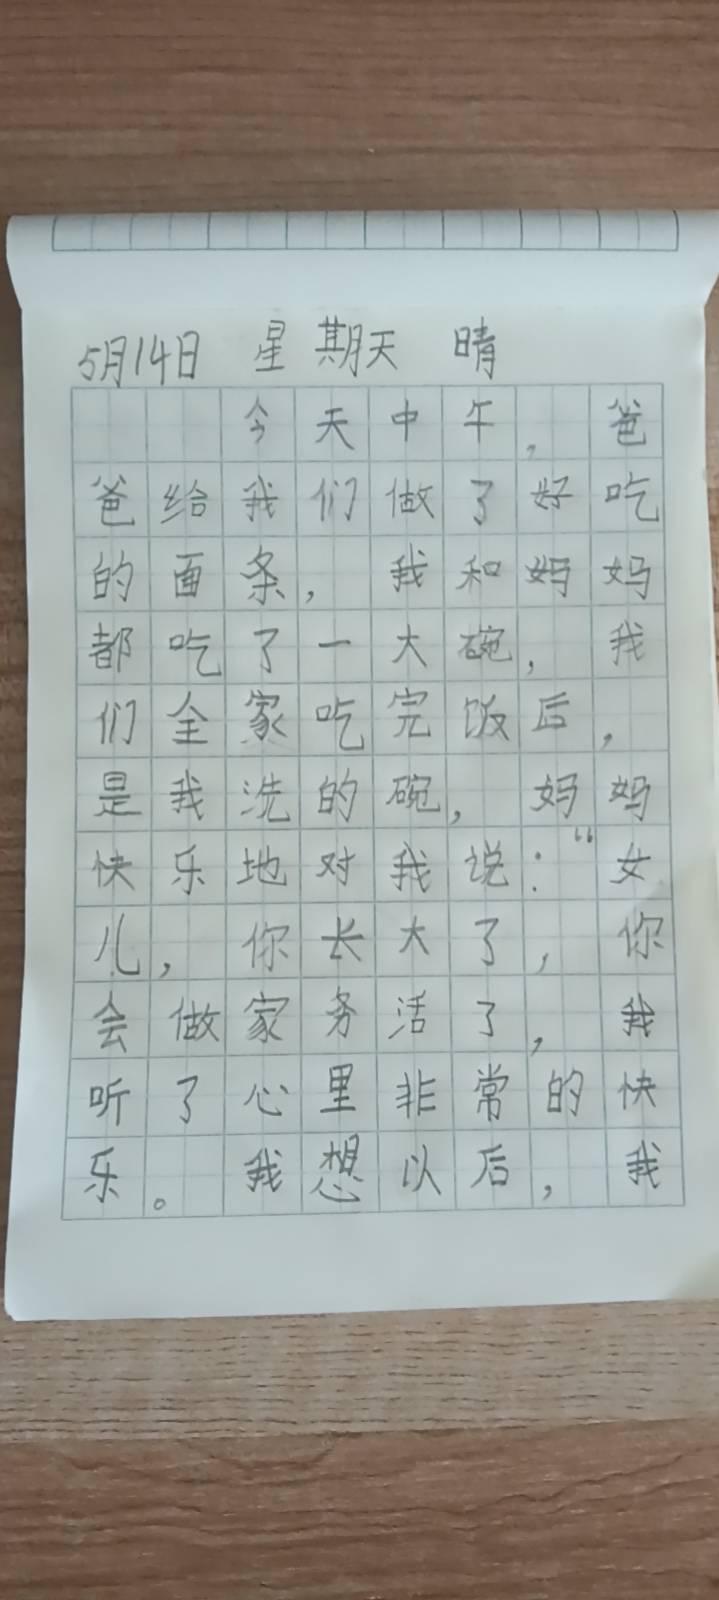 5月14日 星期天 晴
今天中午，爸
爸给我们做了好吃
的面条，我和妈妈
都吃了一大碗，我
们全家吃完饭后，
是我洗的碗，妈妈
快乐地对我说：“女
儿，你长大了，你
会做家务活了，我
听了心里非常的快
乐。我想以后，我